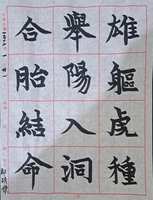 雄軀虎種
舉陽入洞
合胎結命